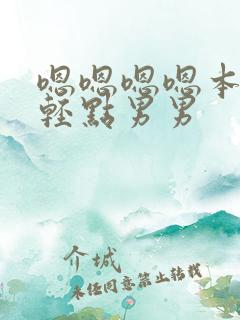 嗯嗯嗯嗯本
輕點男男
介城
未经同意禁止转载